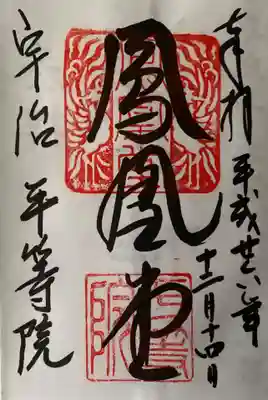 奉拝 平成廿年
十二月十四日
鳳凰堂
宇治 平等院